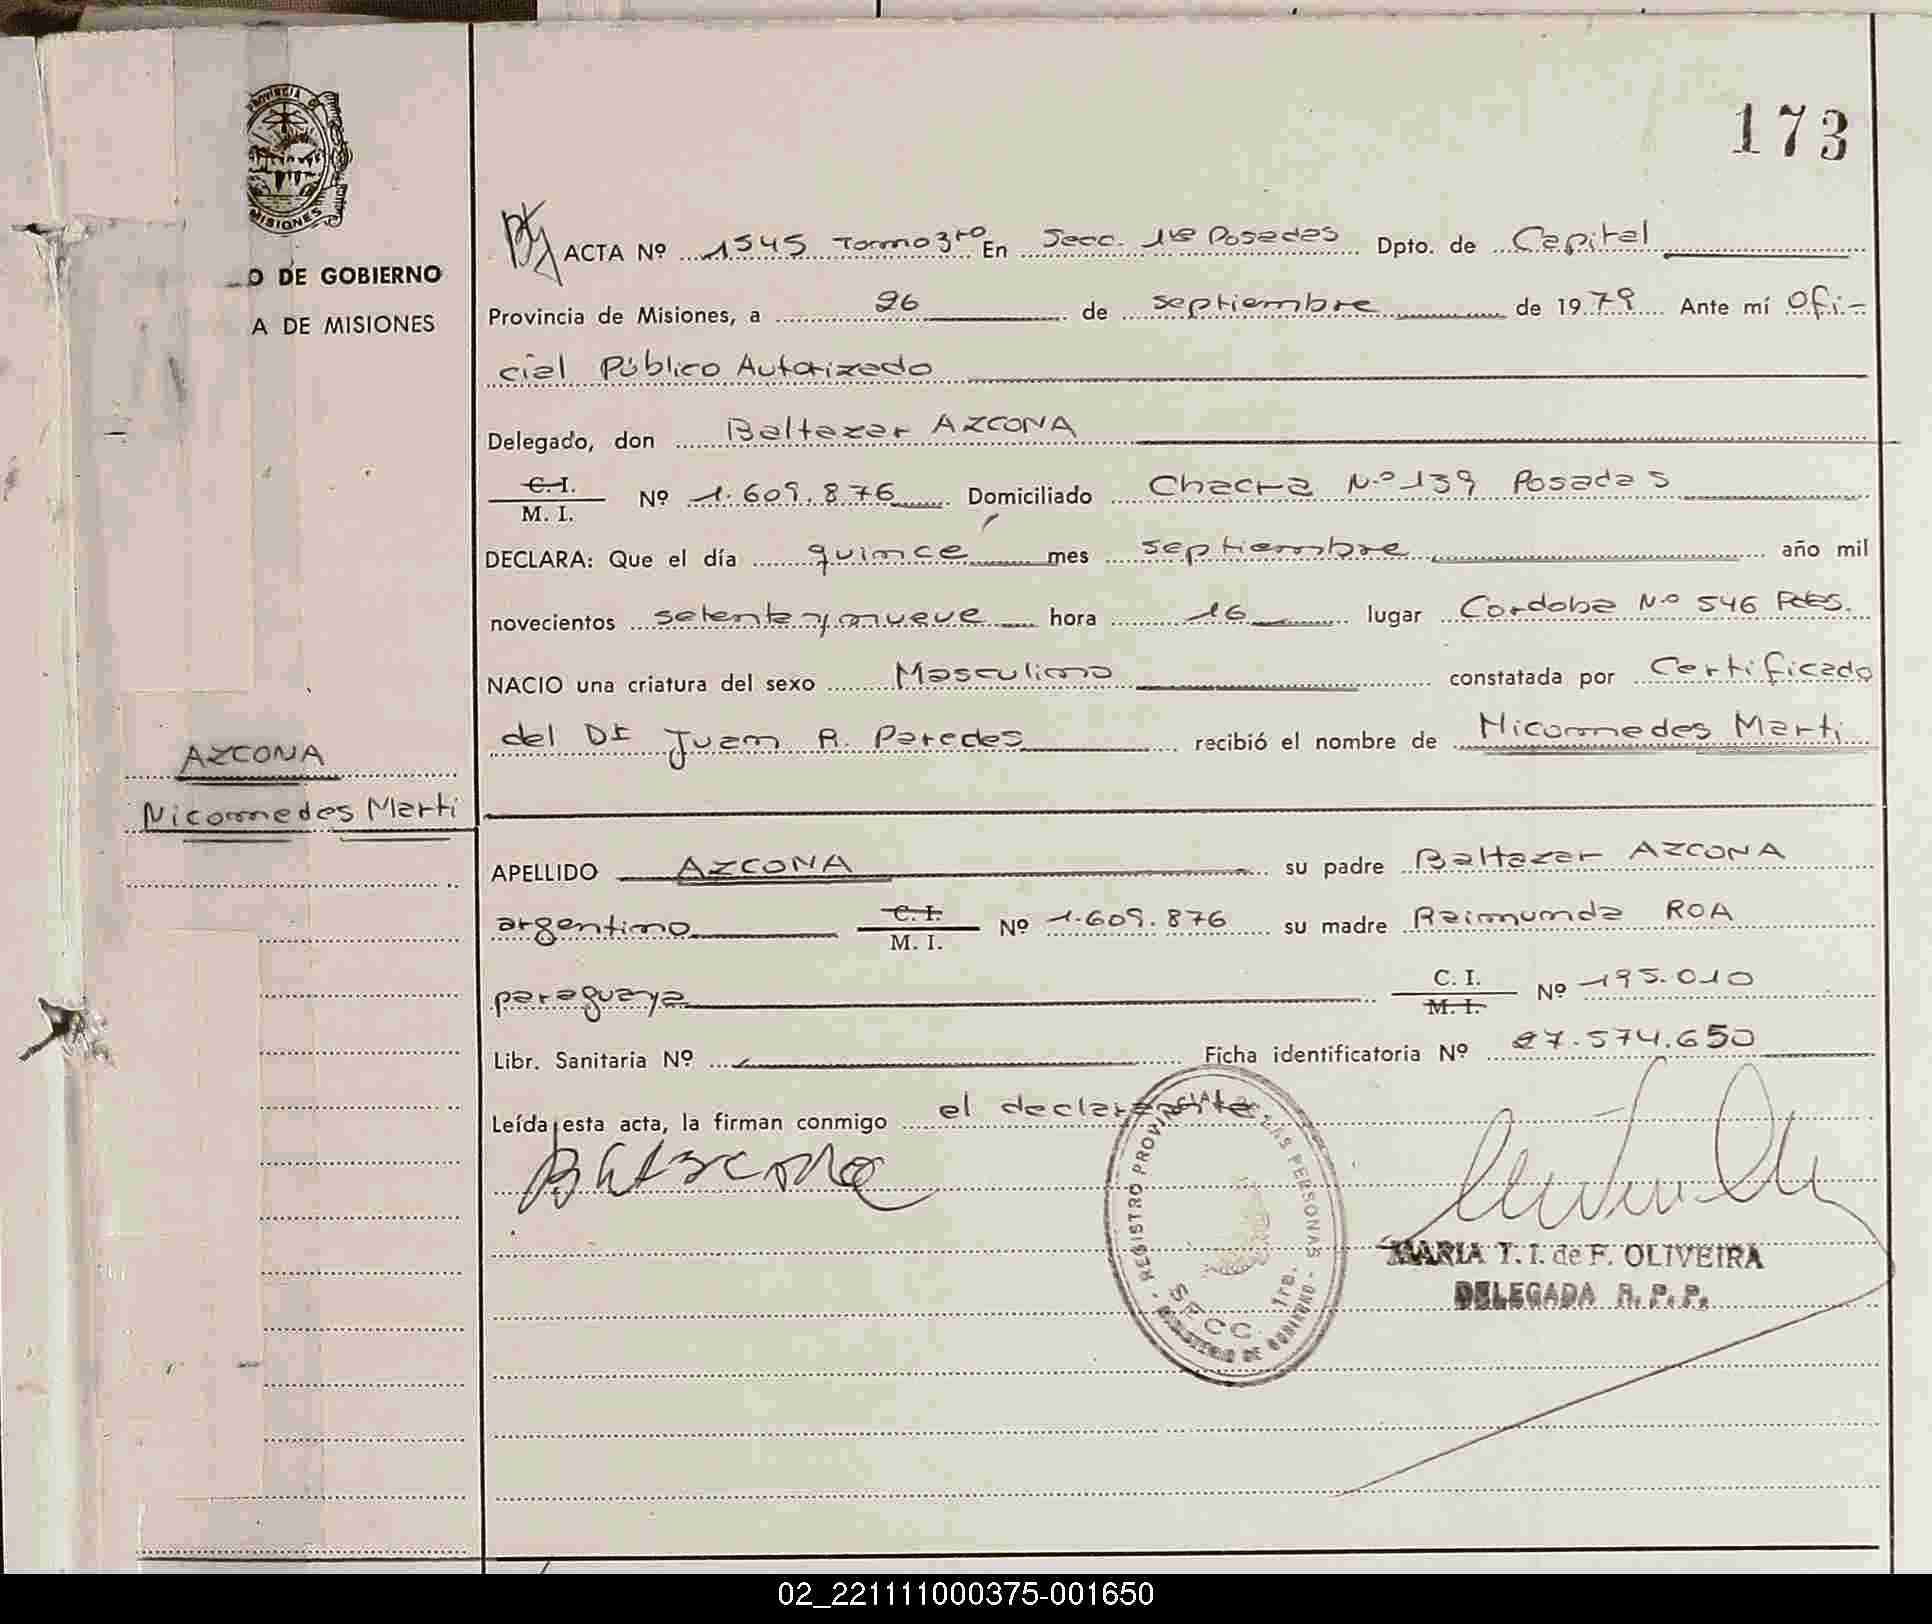 173
PROVINCIA D
MISIONES
O DE GOBIERNO
A DE MISIONES
ACTA Nº 1545 Tomo 3ro En Secc. 1ra Posadas Dpto. de Capital
Provincia de Misiones, a 26 de septiembre de 1979 Ante mí Ofi-
cial Público Autorizado
Delegado, don Baltazar AZCONA
C.I. M. I. Nº 1.609.876 Domiciliado Chacra N.º 139 Posadas
DECLARA: Que el día quince mes septiembre año mil
novecientos setenta y nueve hora 16 lugar Cordoba N.º 546 Pdas.
NACIO una criatura del sexo Masculino constatada por Certificado
del Dr Juan R. Paredes recibió el nombre de Nicomedes Marti
AZCONA
Nicomedes Marti
APELLIDO AZCONA su padre Baltazar AZCONA
argentino C. I. M. I. Nº 1.609.876 su madre Raimunda ROA
paraguaya C. I. M. I. Nº 195.010
Libr. Sanitaria Nº Ficha identificatoria Nº 27.574.650
Leída esta acta, la firman conmigo el declarante
REGISTRO PROVINCIAL DE LAS PERSONAS
SECC. 1ra.
MINISTERIO DE GOBIERNO
MARIA T. I. de F. OLIVEIRA
DELEGADA R. P. P.
02_221111000375-001650